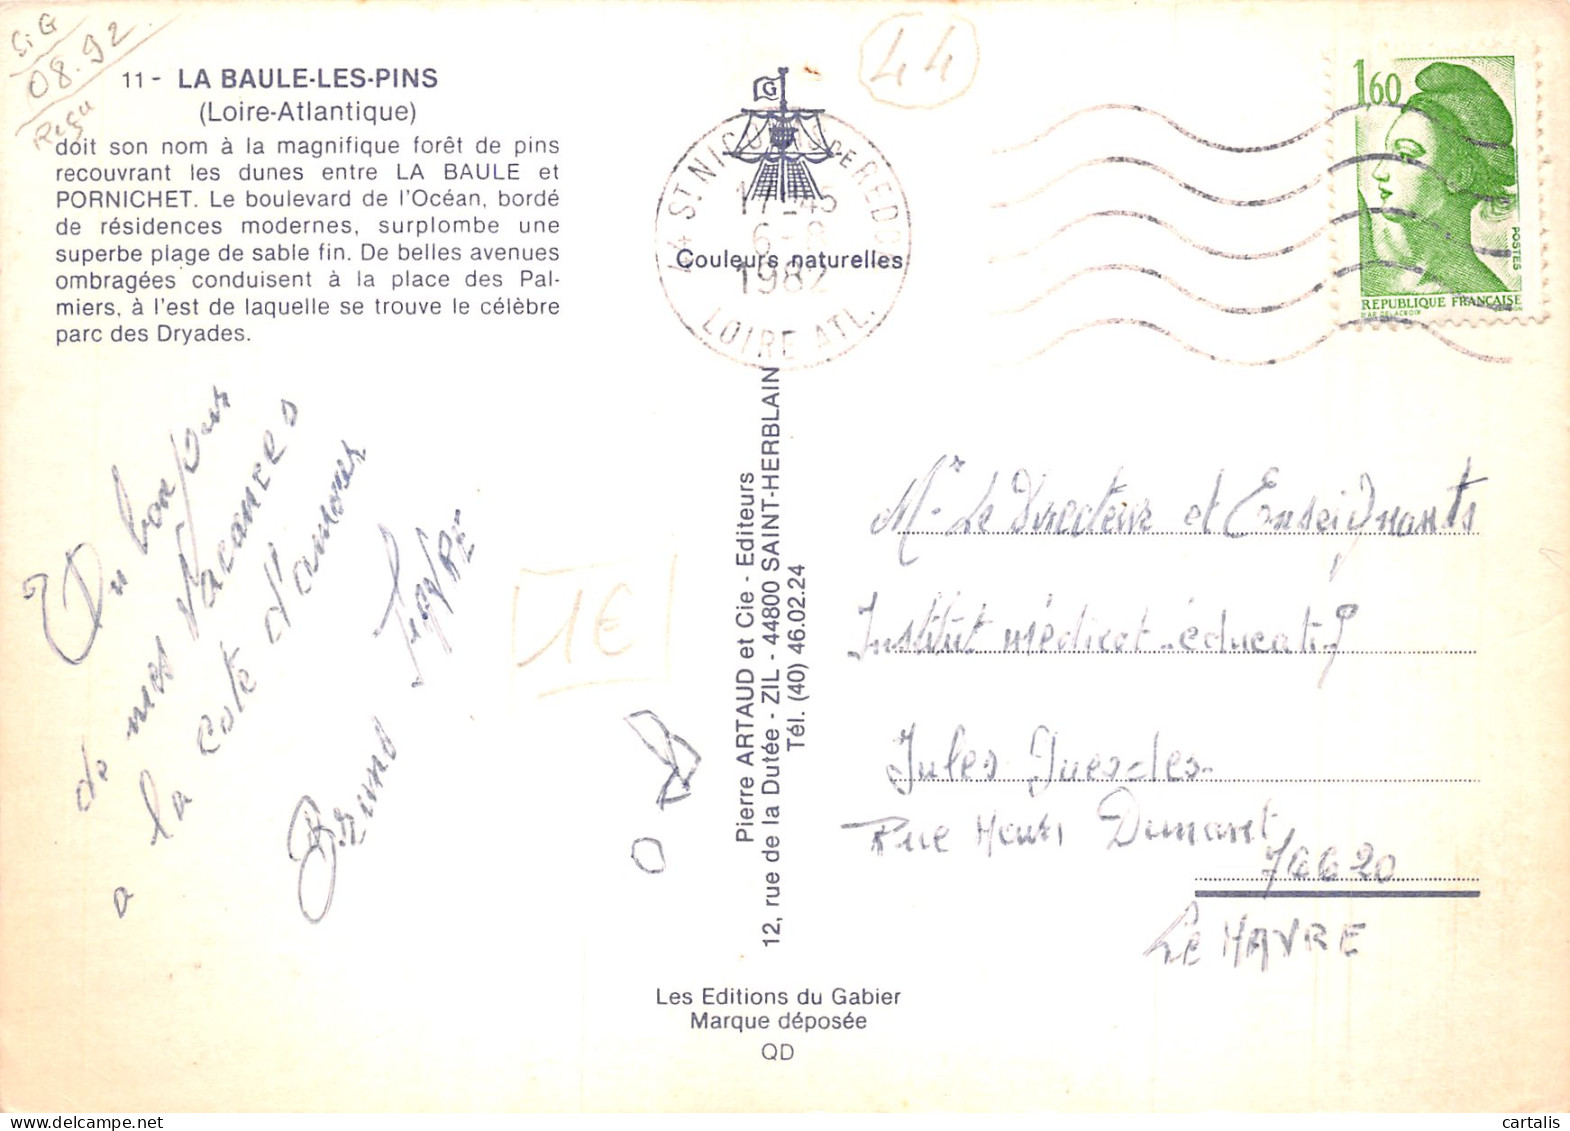 SiG
08.92
Reçu
11 - LA BAULE-LES-PINS
(Loire-Atlantique)
doit son nom à la magnifique forêt de pins
recouvrant les dunes entre LA BAULE et
PORNICHET. Le boulevard de l'Océan, bordé
de résidences modernes, surplombe une
superbe plage de sable fin. De belles avenues
ombragées conduisent à la place des Pal-
miers, à l'est de laquelle se trouve le célèbre
parc des Dryades.
Du bonjour
de mes vacances
a la cote d'amour
Bruno
1€
44
G
44 ST NICOLAS DE REDON
17-45
6-8
1982
LOIRE ATL.
Couleurs naturelles
Pierre ARTAUD et Cie - Editeurs
12, rue de la Dutée - ZIL - 44800 SAINT-HERBLAIN
Tél. (40) 46.02.24
Les Editions du Gabier
Marque déposée
QD
1,60
POSTES
REPUBLIQUE FRANÇAISE
D'AP. DELACROIX
Mr Le Directeur et Enseignants
Institut médicat-éducatif
Jules Guesdes
Rue Henri Dunant
76620
Le HAVRE
cartalis